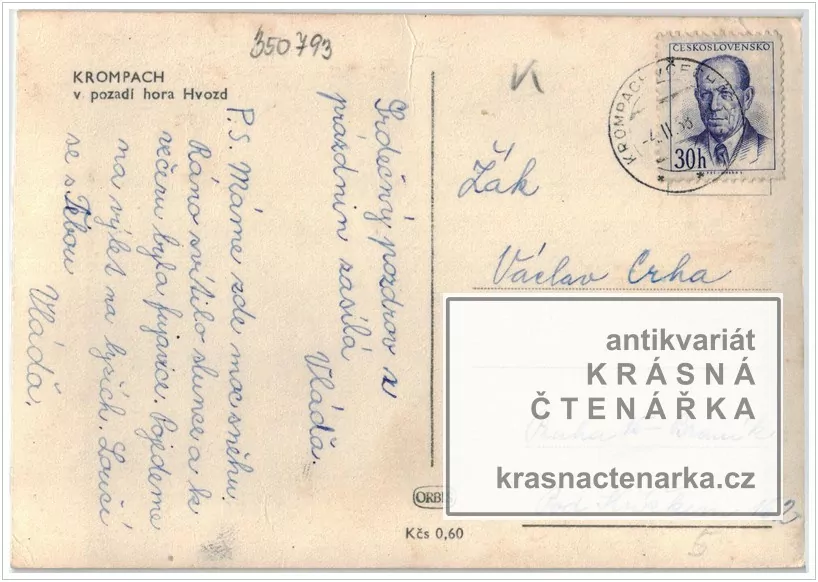 350793
KROMPACH
v pozadí hora Hvozd
Srdečný pozdrav z
prázdnin zasílá
Vláďa.
P.S. Máme zde moc sněhu.
Ráno svítilo slunce a k
večeru byla fujavice. Pojedeme
na výlet na lyžích. Loučí
se s Tebou
Vláďa.
ČESKOSLOVENSKO
30h
KROMPACH
Žák
Václav Crha
antikvariát
KRÁSNÁ
ČTENÁŘKA
krasnactenarka.cz
Praha
Pod
ORBIS
Kčs 0,60
5